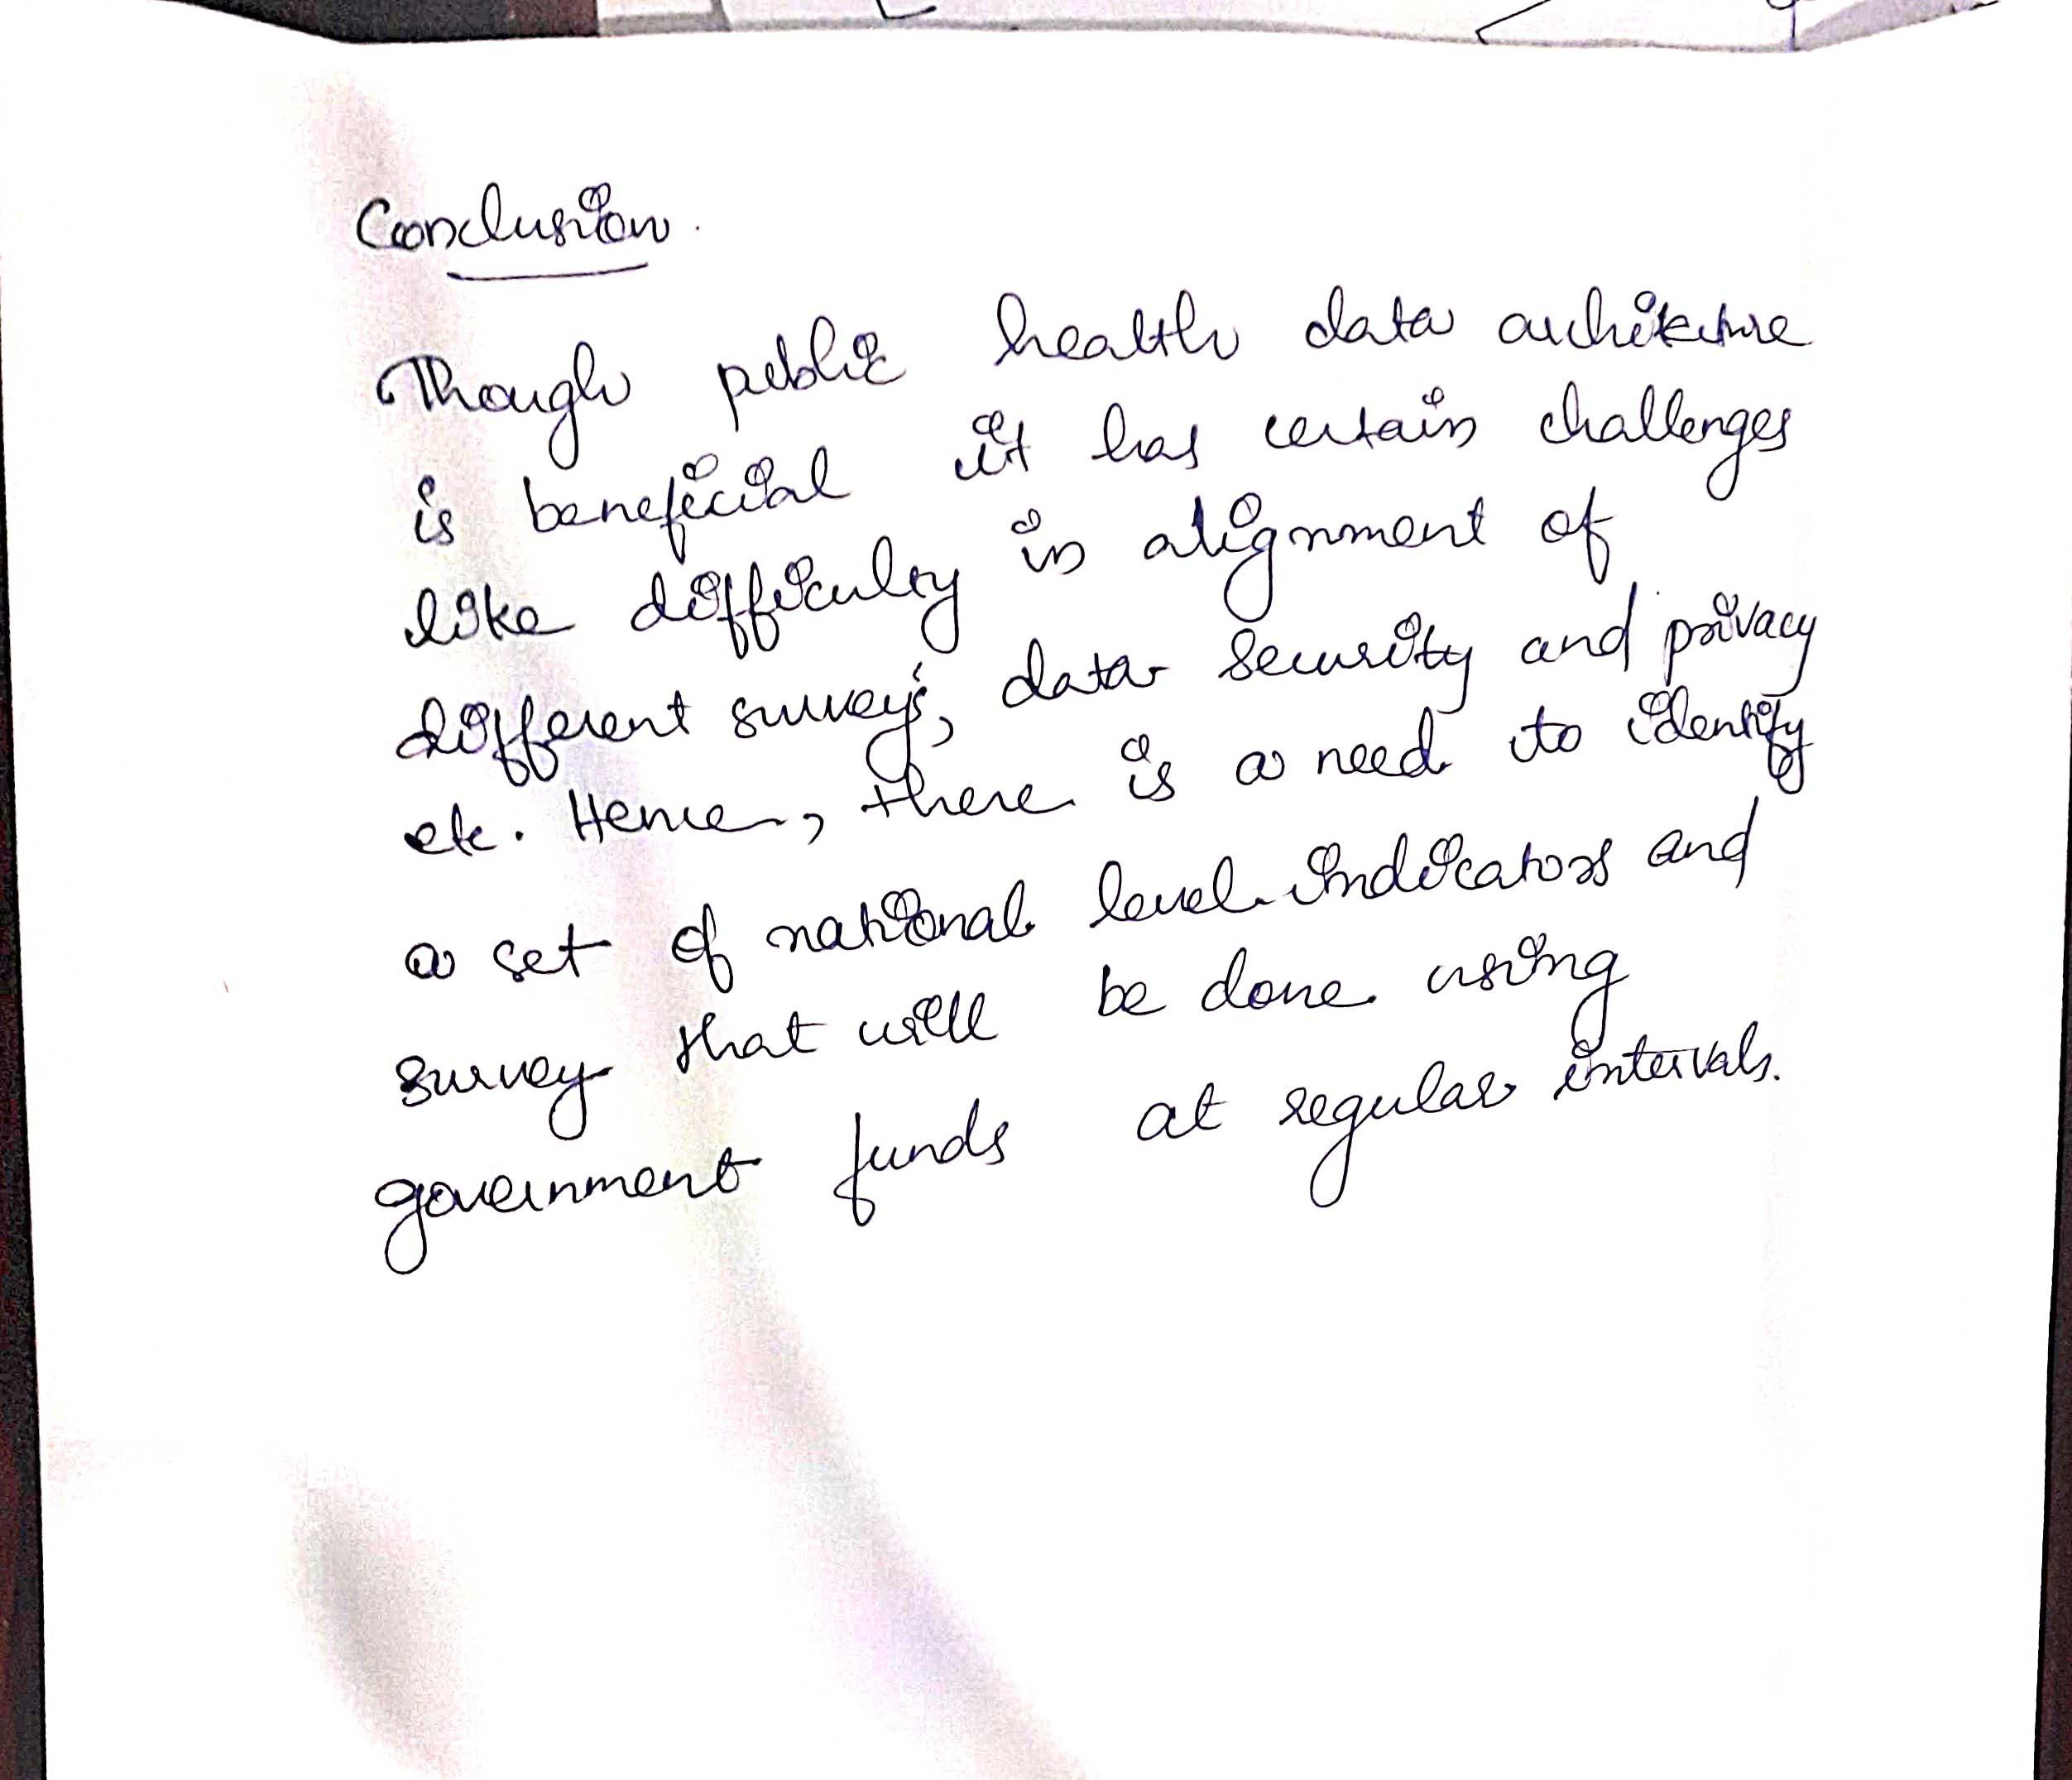 Conclusion.
Though public health data architecture
is beneficial it has certain challenges
like difficulty in alignment of
different surveys, data security and privacy
etc. Hence, there is a need to identify
a set of national level indicators and
survey that will be done using
government funds at regular intervals.